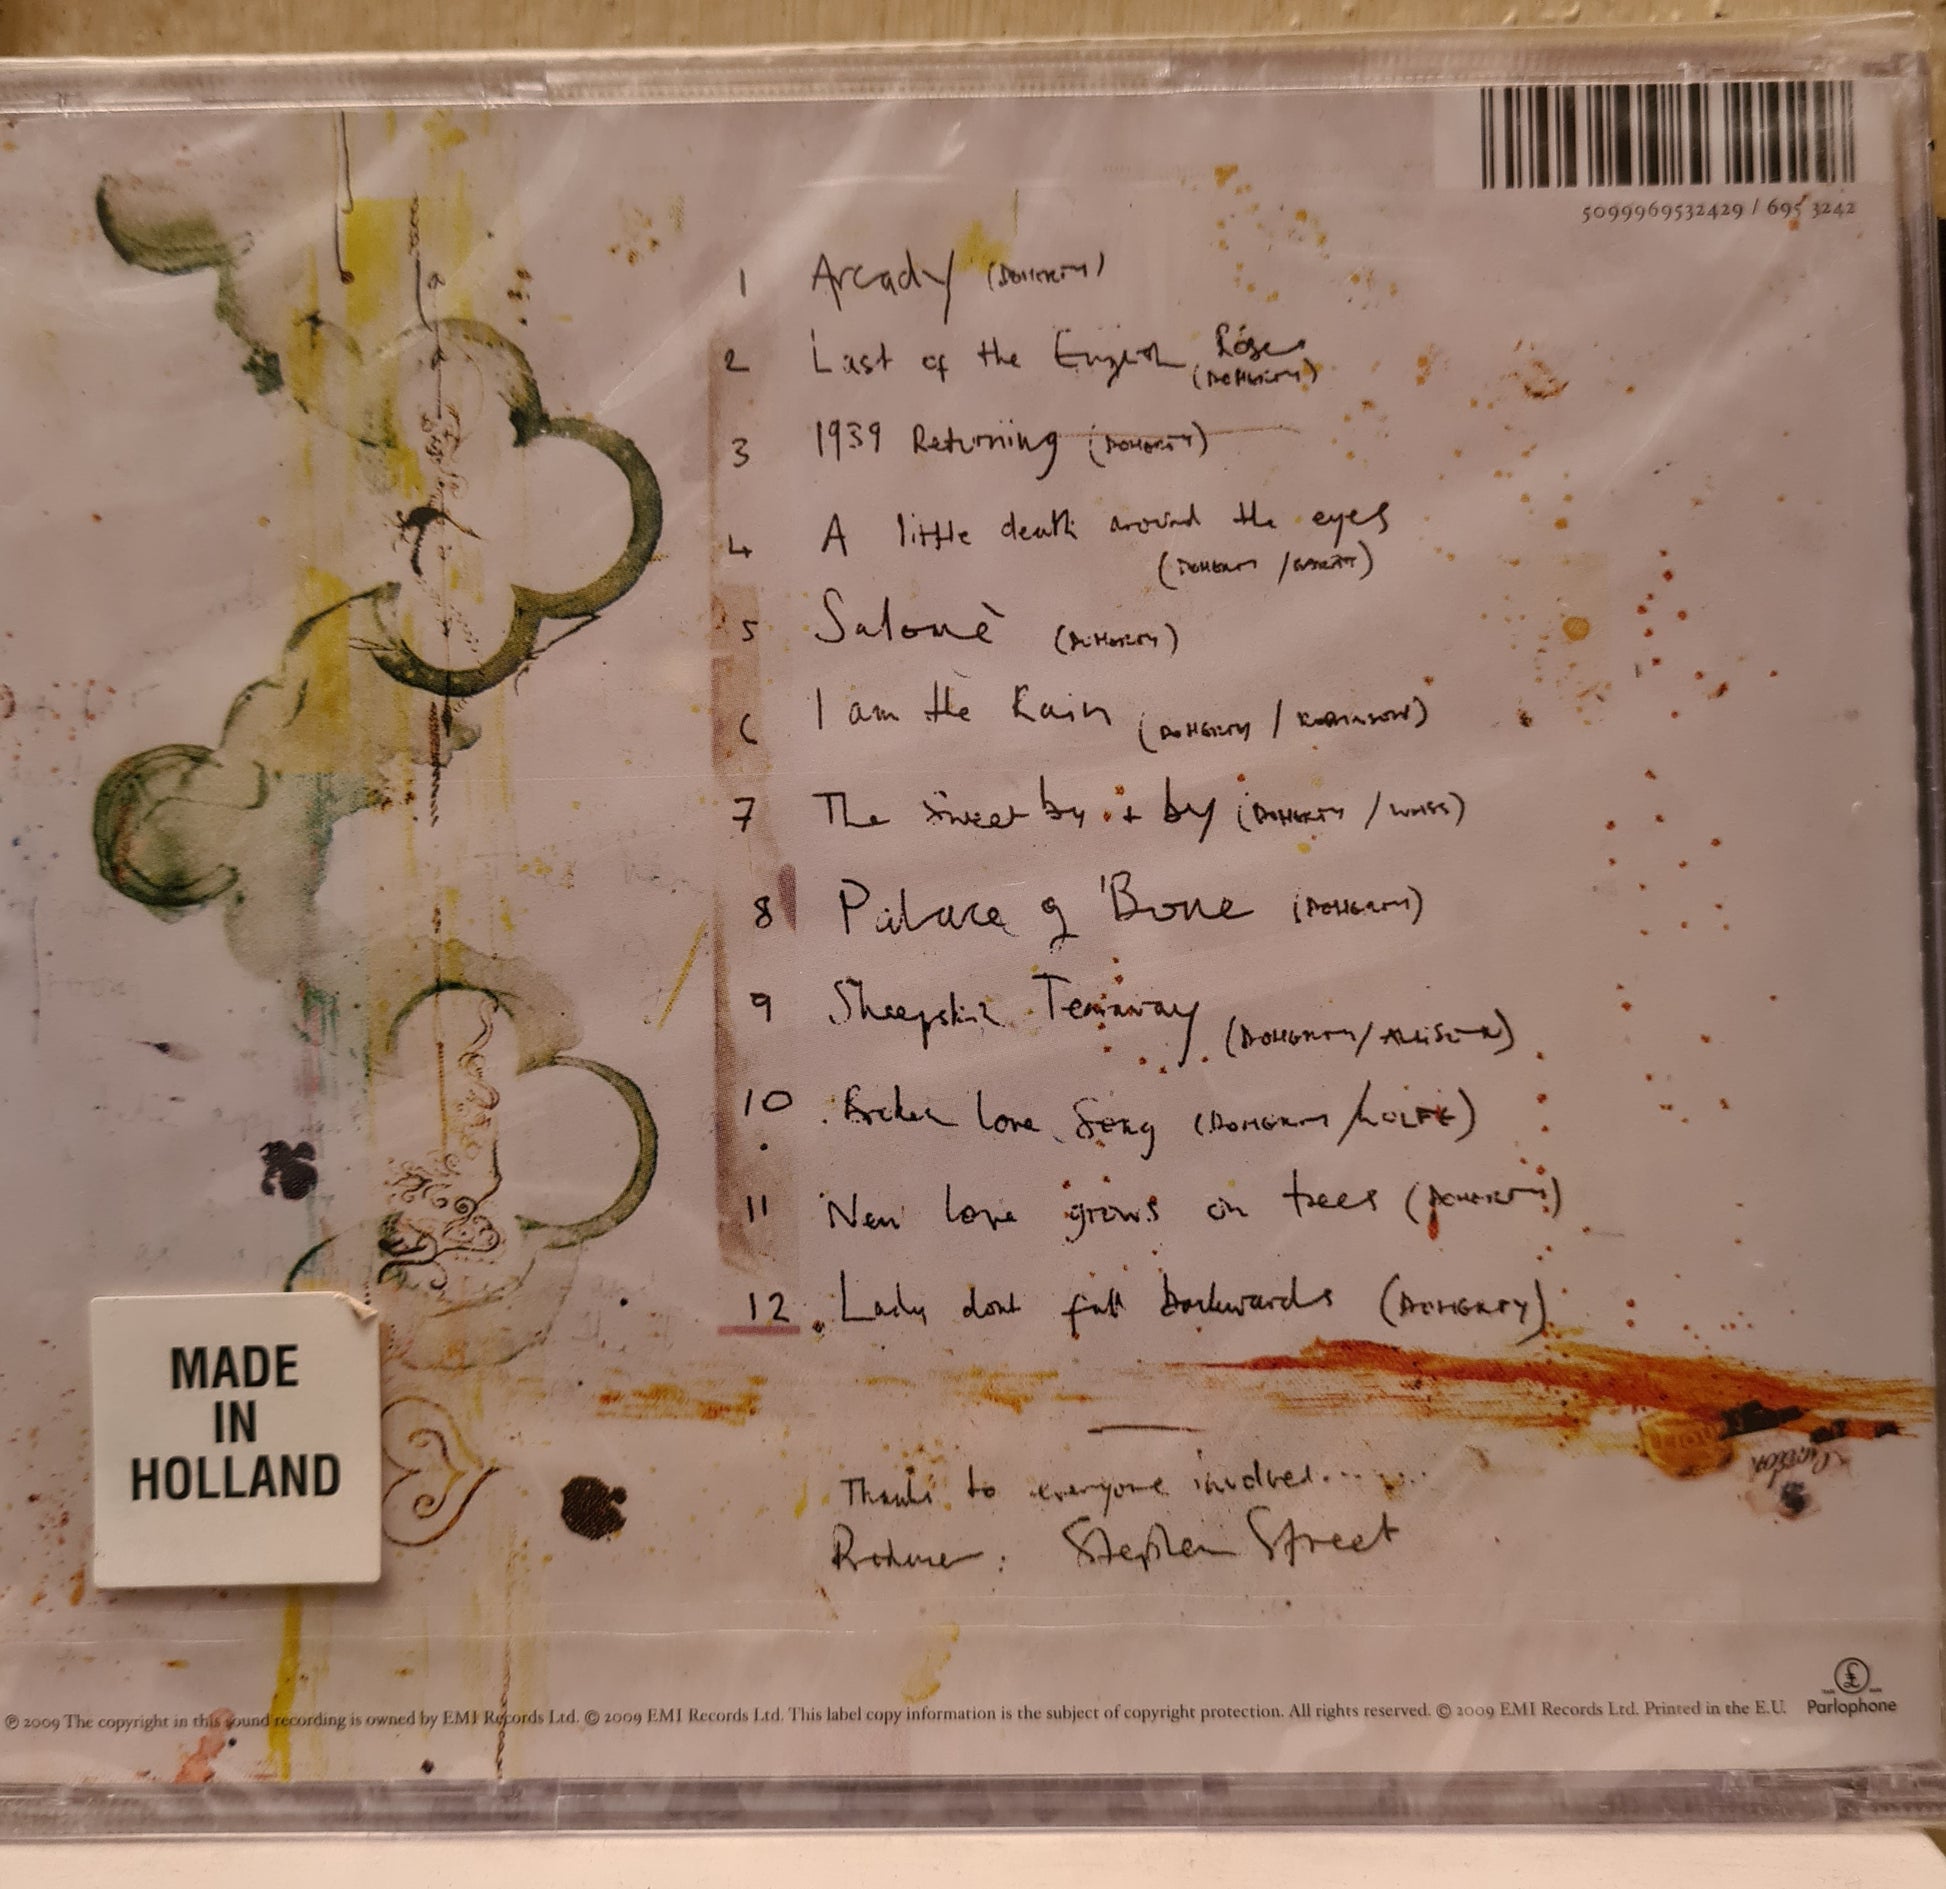 5099969532429 / 695 3242
1 Arcady (DOHERTY)
2 Last of the English Roses
(DOHERTY)
3 1939 Returning (DOHERTY)
4 A little death around the eyes
(DOHERTY /BARÂT)
5 Salomè (DOHERTY)
6 I am the Rain (DOHERTY / ROBINSON)
7 The sweet by + by (DOHERTY / WASS)
8 Palace of Bone (DOHERTY)
9 Sheepskin Tearaway
(DOHERTY/ALLISON)
10 Broken love Song (DOHERTY /WOLFE)
11 New love grows on trees (DOHERTY)
12 Lady dont fall backwards (DOHERTY)
MADE
IN
HOLLAND
Thanks to everyone involved.......
Producer: Stephen Street
℗ 2009 The copyright in this sound recording is owned by EMI Records Ltd. © 2009 EMI Records Ltd. This label copy information is the subject of copyright protection. All rights reserved. © 2009 EMI Records Ltd. Printed in the E.U.
£
Parlophone